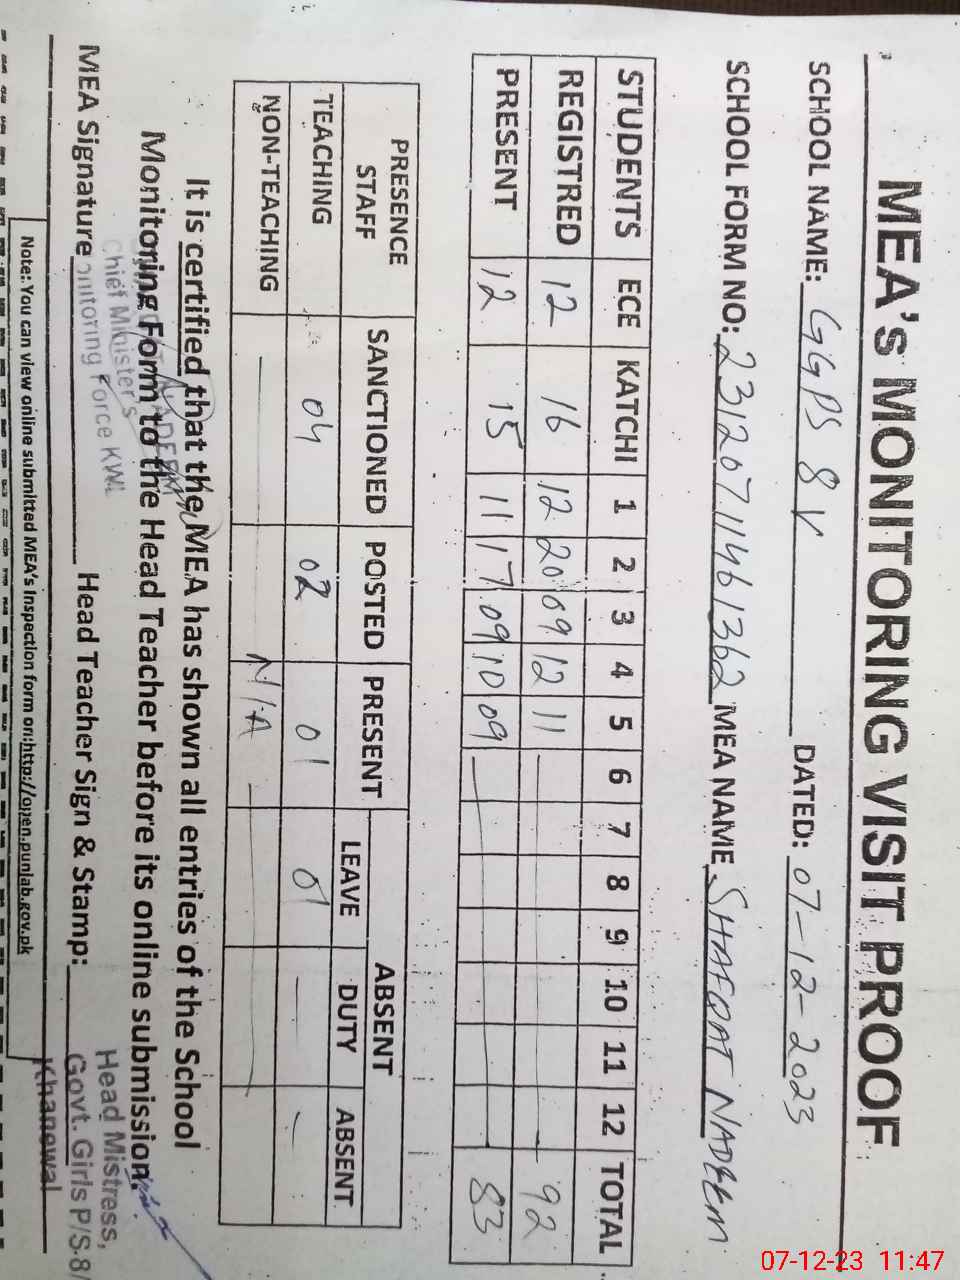 MEA's MONITORING VISIT PROOF
SCHOOL NAME: GGPS 8 V DATED: 07-12-2023
SCHOOL FORM NO: 23120711461362 MEA NAME SHAFQAT NADEEM
STUDENTS ECE KATCHI 1 2 3 4 5 6 7 8 9 10 11 12 TOTAL
REGISTRED 12 16 12 20 09 12 11 92
PRESENT 12 15 11 17 09 10 09 83
PRESENCE STAFF SANCTIONED POSTED PRESENT ABSENT
LEAVE DUTY ABSENT
TEACHING 04 02 01 01 — —
NON-TEACHING N/A
It is certified that the MEA has shown all entries of the School
Monitoring Form to the Head Teacher before its online submission.
Chief Minister's
Monitoring Force KWL
Head Mistress,
MEA Signature Head Teacher Sign & Stamp: Govt. Girls P/S-8/
Khanewal
Note: You can view online submitted MEA's Inspection form on:http://open.punlab.gov.pk
07-12-23 11:47